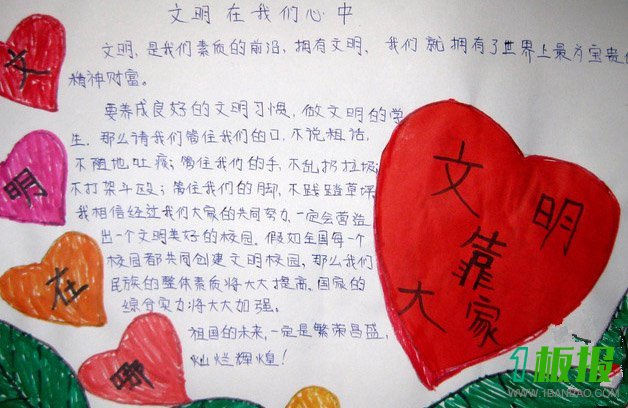 文明在我们心中
文明,是我们素质的前沿,拥有文明、我们就拥有了世界上最为宝贵
精神财富。
要养成良好的文明习惯,做文明的学
生.那么请我们管住我们的口,不说粗话,
不随地吐痰;管住我们的手,不乱扔垃圾;
不打架斗殴;管住我们的脚,不践踏草坪
我相信经过我们大家的共同努力,一定会营造
出一个文明美好的校园.假如全国每一个
校园都共同创建文明校园,那么我们
民族的整体素质将大大提高,国家的
综合实力将大大加强。
祖国的未来,一定是繁荣昌盛,
灿烂辉煌!
文
明
在
哪
文明
靠
大家
1板报
WWW.1BANBAO.COM